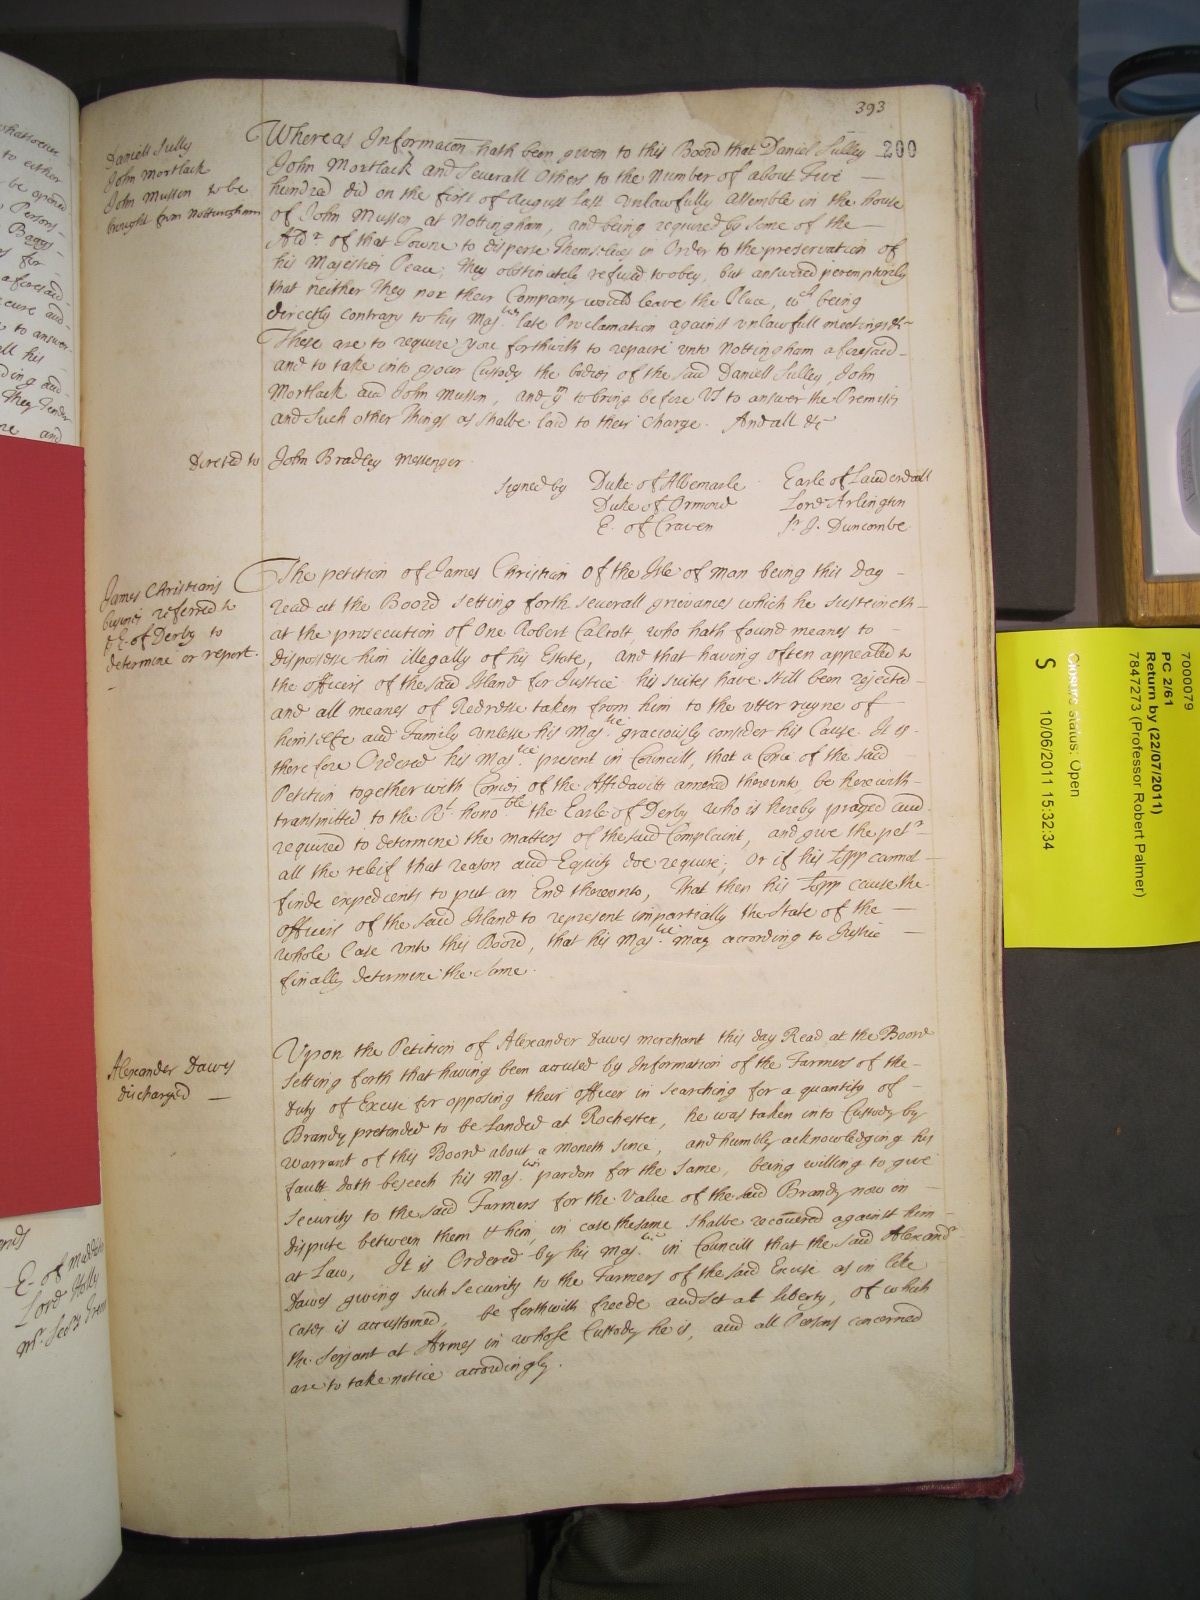 393
200
Daniell Sully
John Mortlack
John Musson to be
brought from Nottingham
Whereas Informacon hath been given to this Board that Daniel Sulley
John Mortlack and Severall Others to the Number of about Five
hundred did on the first of August last unlawfully assemble in the house
of John Musson at Nottingham, and being required by some of the
Ald.rs of that Towne to disperse Themselves in Order to the preservation of
his Majesties Peace, They obstinately refused to obey, but answered peremptorily
that neither They nor their Company would leave the Place, wch being
directly contrary to his Maj.ties late Proclamation against unlawfull meetings &c
These are to require you forthwith to repaire unto Nottingham aforesaid
and to take into your Custody the bodies of the said Daniell Sulley, John
Mortlack and John Musson, and ym to bring before Us to answer the Premises
and Such other Things as shalbe laid to their Charge. And all &c
Directed to John Bradley Messenger.
Signed by Duke of Albemarle Earle of Lauderdail
Duke of Ormond Lord Arlington
E. of Craven Sr J. Duncombe
James Christians
busines referred to
ye E. of Derby to
determine or report.
The petition of James Christian Of the Isle of Man being this day
read at the Board setting forth severall grievances which he susteineth
at the prosecution of One Robert Calcott, who hath found meanes to
dispossesse him illegally of his Estate, and that having often appealed to
the officers of the said Island for Justice his suites have still been rejected
and all meanes of Redresse taken from him to the utter ruyne of
himselfe and Family unlesse his Maj.tie graciously consider his Cause. It is
therefore Ordered his Maj.tie present in Councill, that a Copie of the said
Petition together with Copies of the Affidavits annexed thereunto be herewith
transmitted to the Rt. hono.ble the Earle of Derby who is hereby prayed and
required to determine the matters of the said Complaint, and give the petr
all the releif that reason and Equity doe require; Or if his Lopp cannot
finde expedients to put an End thereunto, That then his Lopp cause the
officers of the said Island to represent impartially the State of the
whole Case unto this Board, that his Maj.tie may according to Justice
finally determine the same.
Alexander Dawes
discharged
Upon the Petition of Alexander Dawes merchant this day Read at the Board
setting forth that having been accused by Information of the Farmers of the
Duty of Excise for opposing their officer in searching for a quantity of
Brandy pretended to be Landed at Rochester, he was taken into Custody by
warrant of this Board about a moneth since, and humbly acknowledging his
fault doth beseech his Maj.ties pardon for the same, being willing to give
security to the said Farmers for the Value of the said Brandy now in
dispute between them & him, in case the same shalbe recovered against him
at Law, It is Ordered by his Maj.tie in Councill that the said Alexandr
Dawes giving such Security to the Farmers of the said Excise as in like
cases is accustomed, be forthwith freede and set at liberty, of which
the Serjant at Armes in whose Custody he is, and all Persons concerned
are to take notice accordingly.
whatsoever
to either
be opened
Persons
Baggs
for
aforesaid
cure and
to answer
all his
ding and
They Tender
and
E. of
Lord Holly
7000079
PC 2/61
Return by (22/07/2011)
7847273 (Professor Robert Palmer)
Closure status: Open
S 10/06/2011 15:32:34